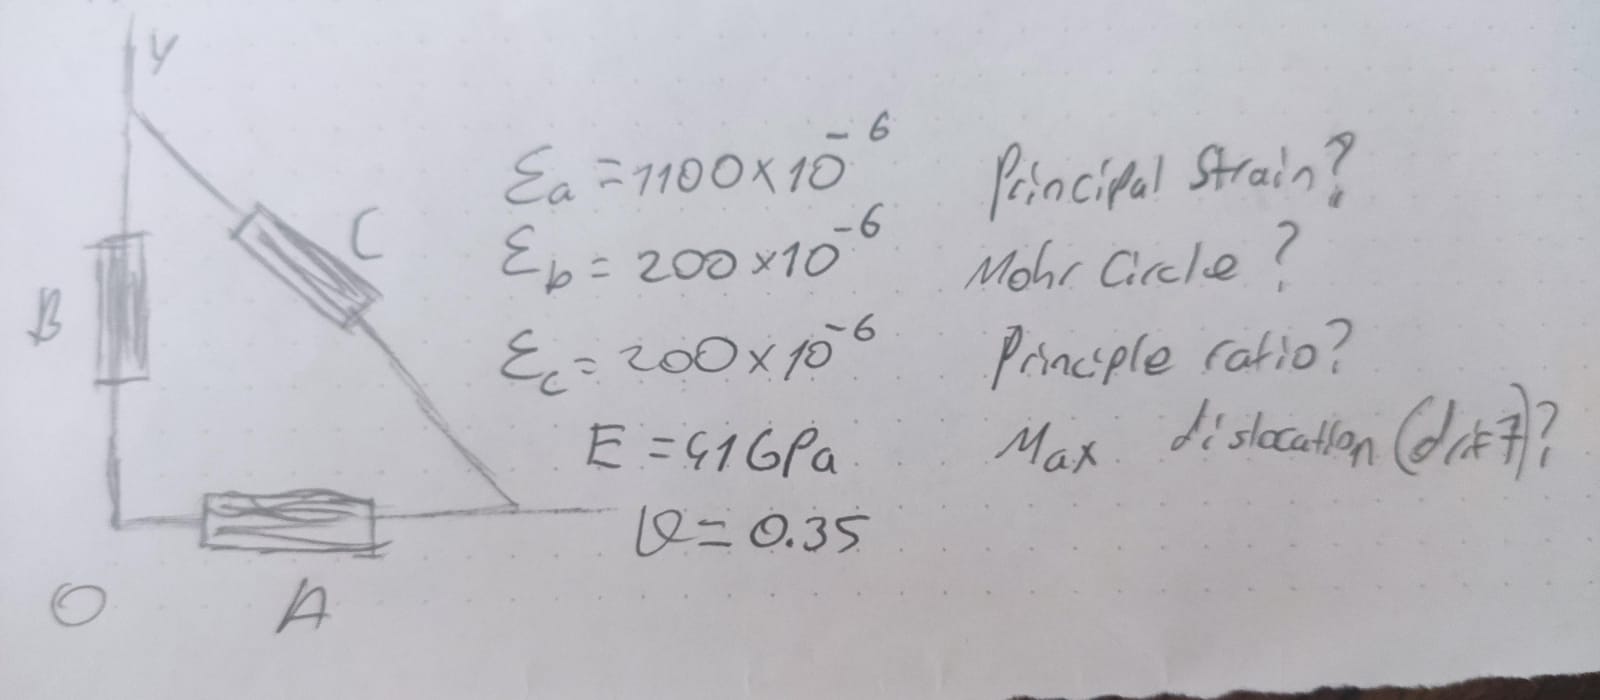 y
C
B
O
A
Ɛa = 1100 × 10⁻⁶
Ɛb = 200 × 10⁻⁶
Ɛc = 200 × 10⁻⁶
E = 41 GPa
ν = 0.35
Principal Strain?
Mohr Circle?
Principle ratio?
Max dislocation